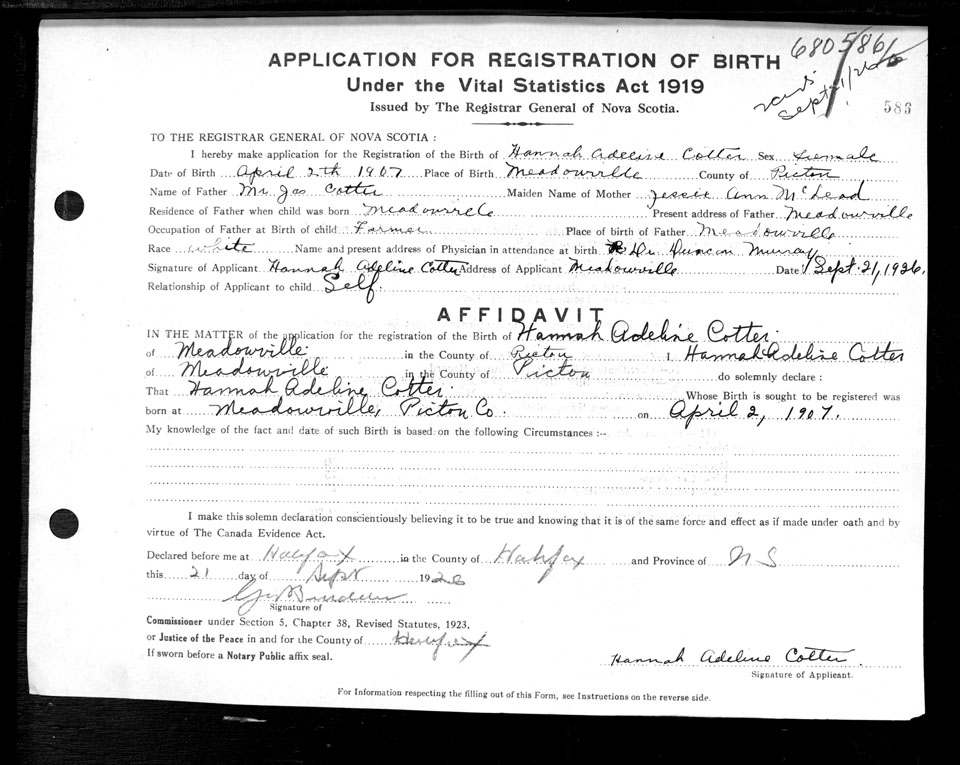 680586
APPLICATION FOR REGISTRATION OF BIRTH
Under the Vital Statistics Act 1919
Sept 21/26
Issued by The Registrar General of Nova Scotia.
583
TO THE REGISTRAR GENERAL OF NOVA SCOTIA :
I hereby make application for the Registration of the Birth of Hannah Adeline Cotter Sex Female
Date of Birth April 2th 1907 Place of Birth Meadowville County of Picton
Name of Father Mr Jas Cotter Maiden Name of Mother Jessie Ann McLead
Residence of Father when child was born Meadowville Present address of Father Meadowville
Occupation of Father at Birth of child Farmer Place of birth of Father Meadowville
Race white Name and present address of Physician in attendance at birth Dr. Duncan Murray
Signature of Applicant Hannah Adeline Cotter Address of Applicant Meadowville Date Sept. 21, 1926.
Relationship of Applicant to child Self.
AFFIDAVIT
IN THE MATTER of the application for the registration of the Birth of Hannah Adeline Cotter.
of Meadowville in the County of Picton I, Hannah Adeline Cotter
of Meadowville in the County of Picton do solemnly declare :
That Hannah Adeline Cotter. Whose Birth is sought to be registered was
born at Meadowville, Picton Co. on April 2, 1907.
My knowledge of the fact and date of such Birth is based on the following Circumstances :--
I make this solemn declaration conscientiously believing it to be true and knowing that it is of the same force and effect as if made under oath and by
virtue of The Canada Evidence Act.
Declared before me at Halifax in the County of Halifax and Province of NS
this 21 day of Sept 1926
Signature of
Commissioner under Section 5, Chapter 38, Revised Statutes, 1923,
or Justice of the Peace in and for the County of Halifax
If sworn before a Notary Public affix seal.
Hannah Adeline Cotter.
Signature of Applicant.
For Information respecting the filling out of this Form, see Instructions on the reverse side.